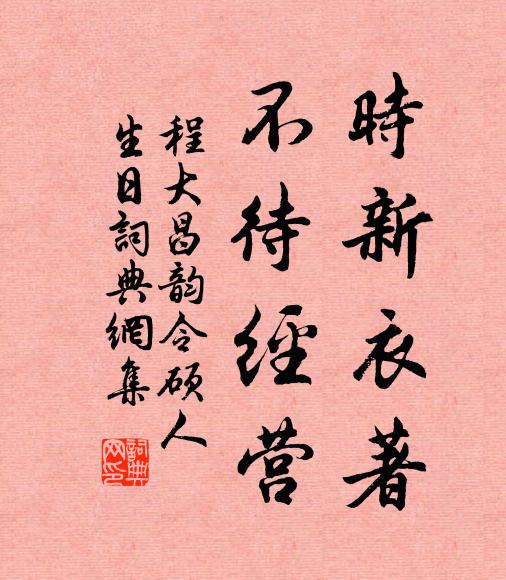 時新衣著
不待經营
程大昌韵令硕人
生日詞典網集
詞典网印